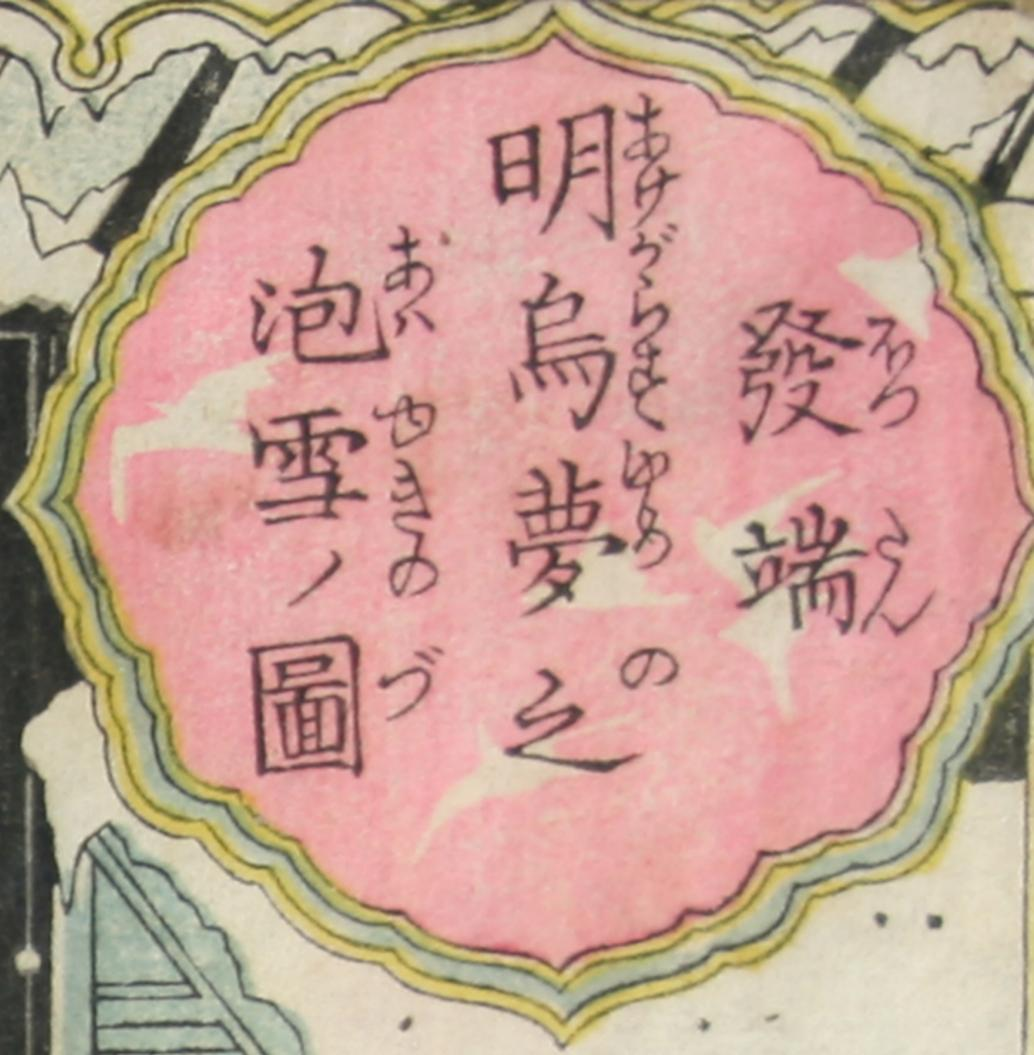 發端
ほつたん
明烏夢之
あけがらすゆめの
泡雪ノ圖
あハゆきのづ